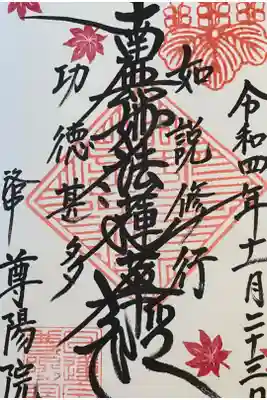 令和四年十一月二十三日
如説修行
南無妙法蓮華経
功徳甚多
尊陽院